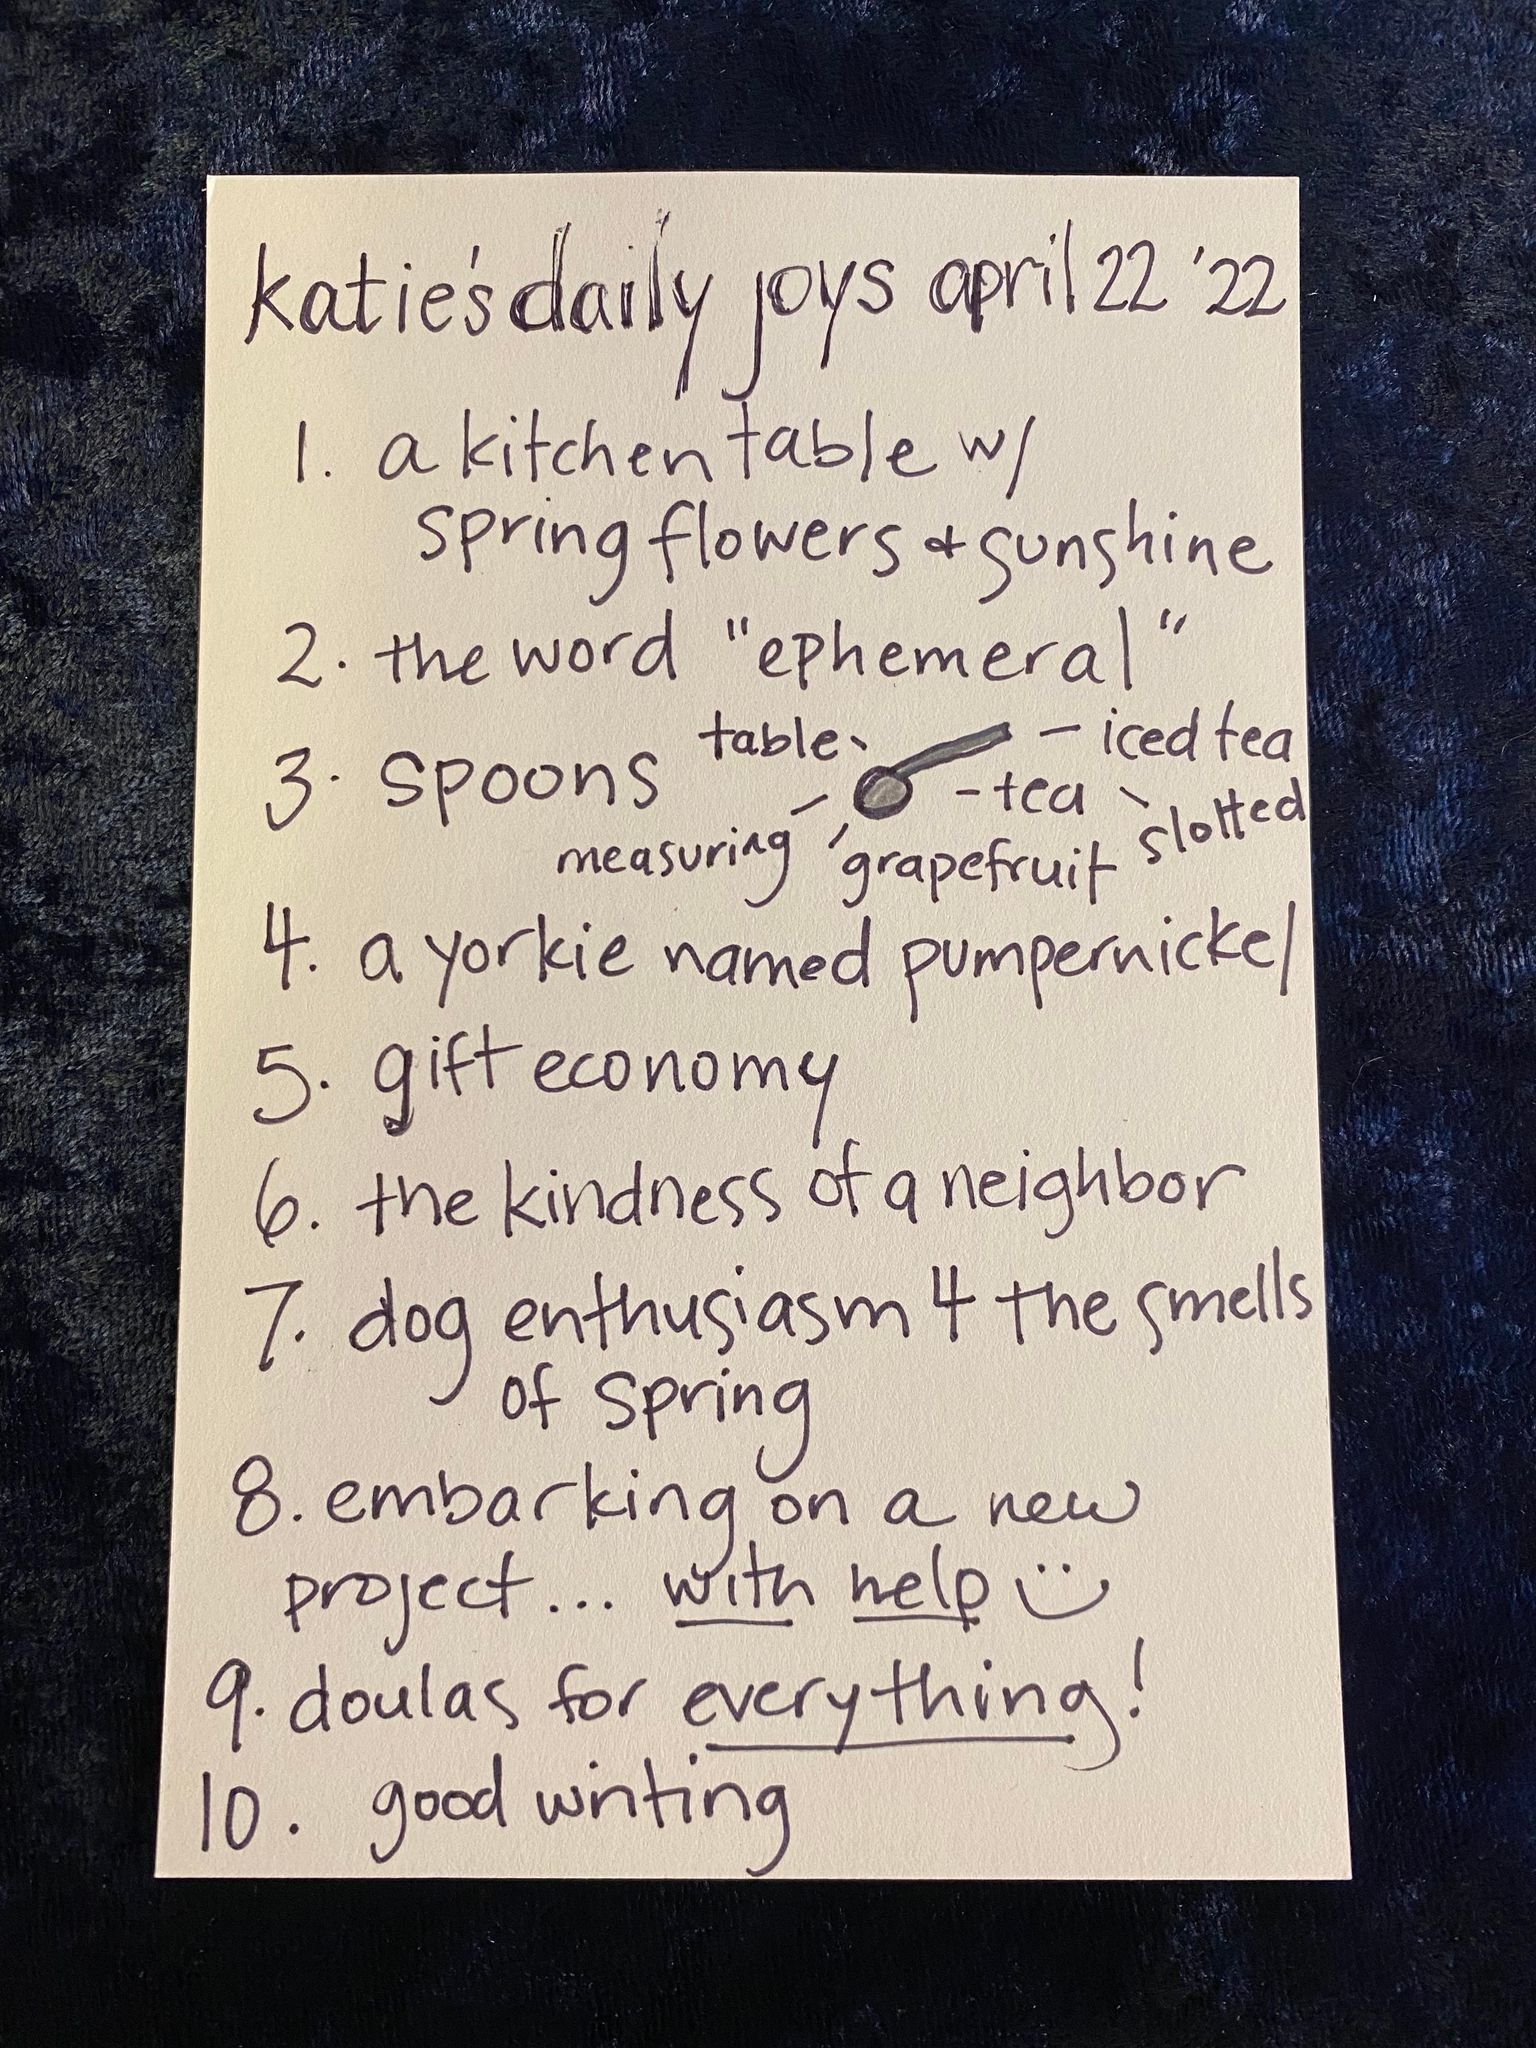 katie's daily joys april 22 '22
1. a kitchen table w/
spring flowers & sunshine
2. the word "ephemeral"
3. spoons table - iced tea
- tea slotted
measuring grapefruit
4. a yorkie named pumpernickel
5. gift economy
6. the kindness of a neighbor
7. dog enthusiasm 4 the smells
of spring
8. embarking on a new
project... with help :)
9. doulas for everything!
10. good writing